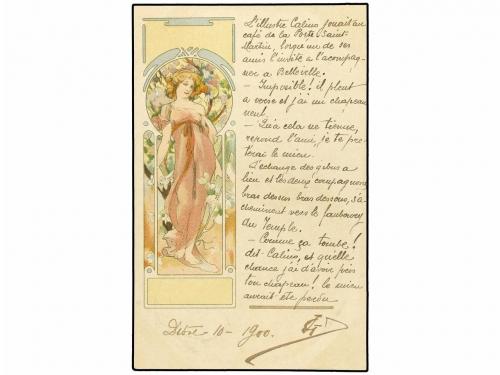 L'illustre Calino jouait au
café de la Porte Saint-
Martin, lorsqu'un de ses
amis l'invite à l'acompag-
ner a Belleville.
— Imposible! il pleut
a verse et j'ai un chapeau
neuf.
— Qu'à cela ne tienne,
repond l'ami, je te prê-
terai le mien.
L'echange des gibus a
lieu et les deux compagnons
bras dessus bras dessous, s'a-
cheminent vers le faubourg
du Temple.
— Comme ça tombe!
dit Calino, et quelle
chance j'ai d'avoir pris
ton chapeau! le mien
aurait été perdu
10 - 1900.